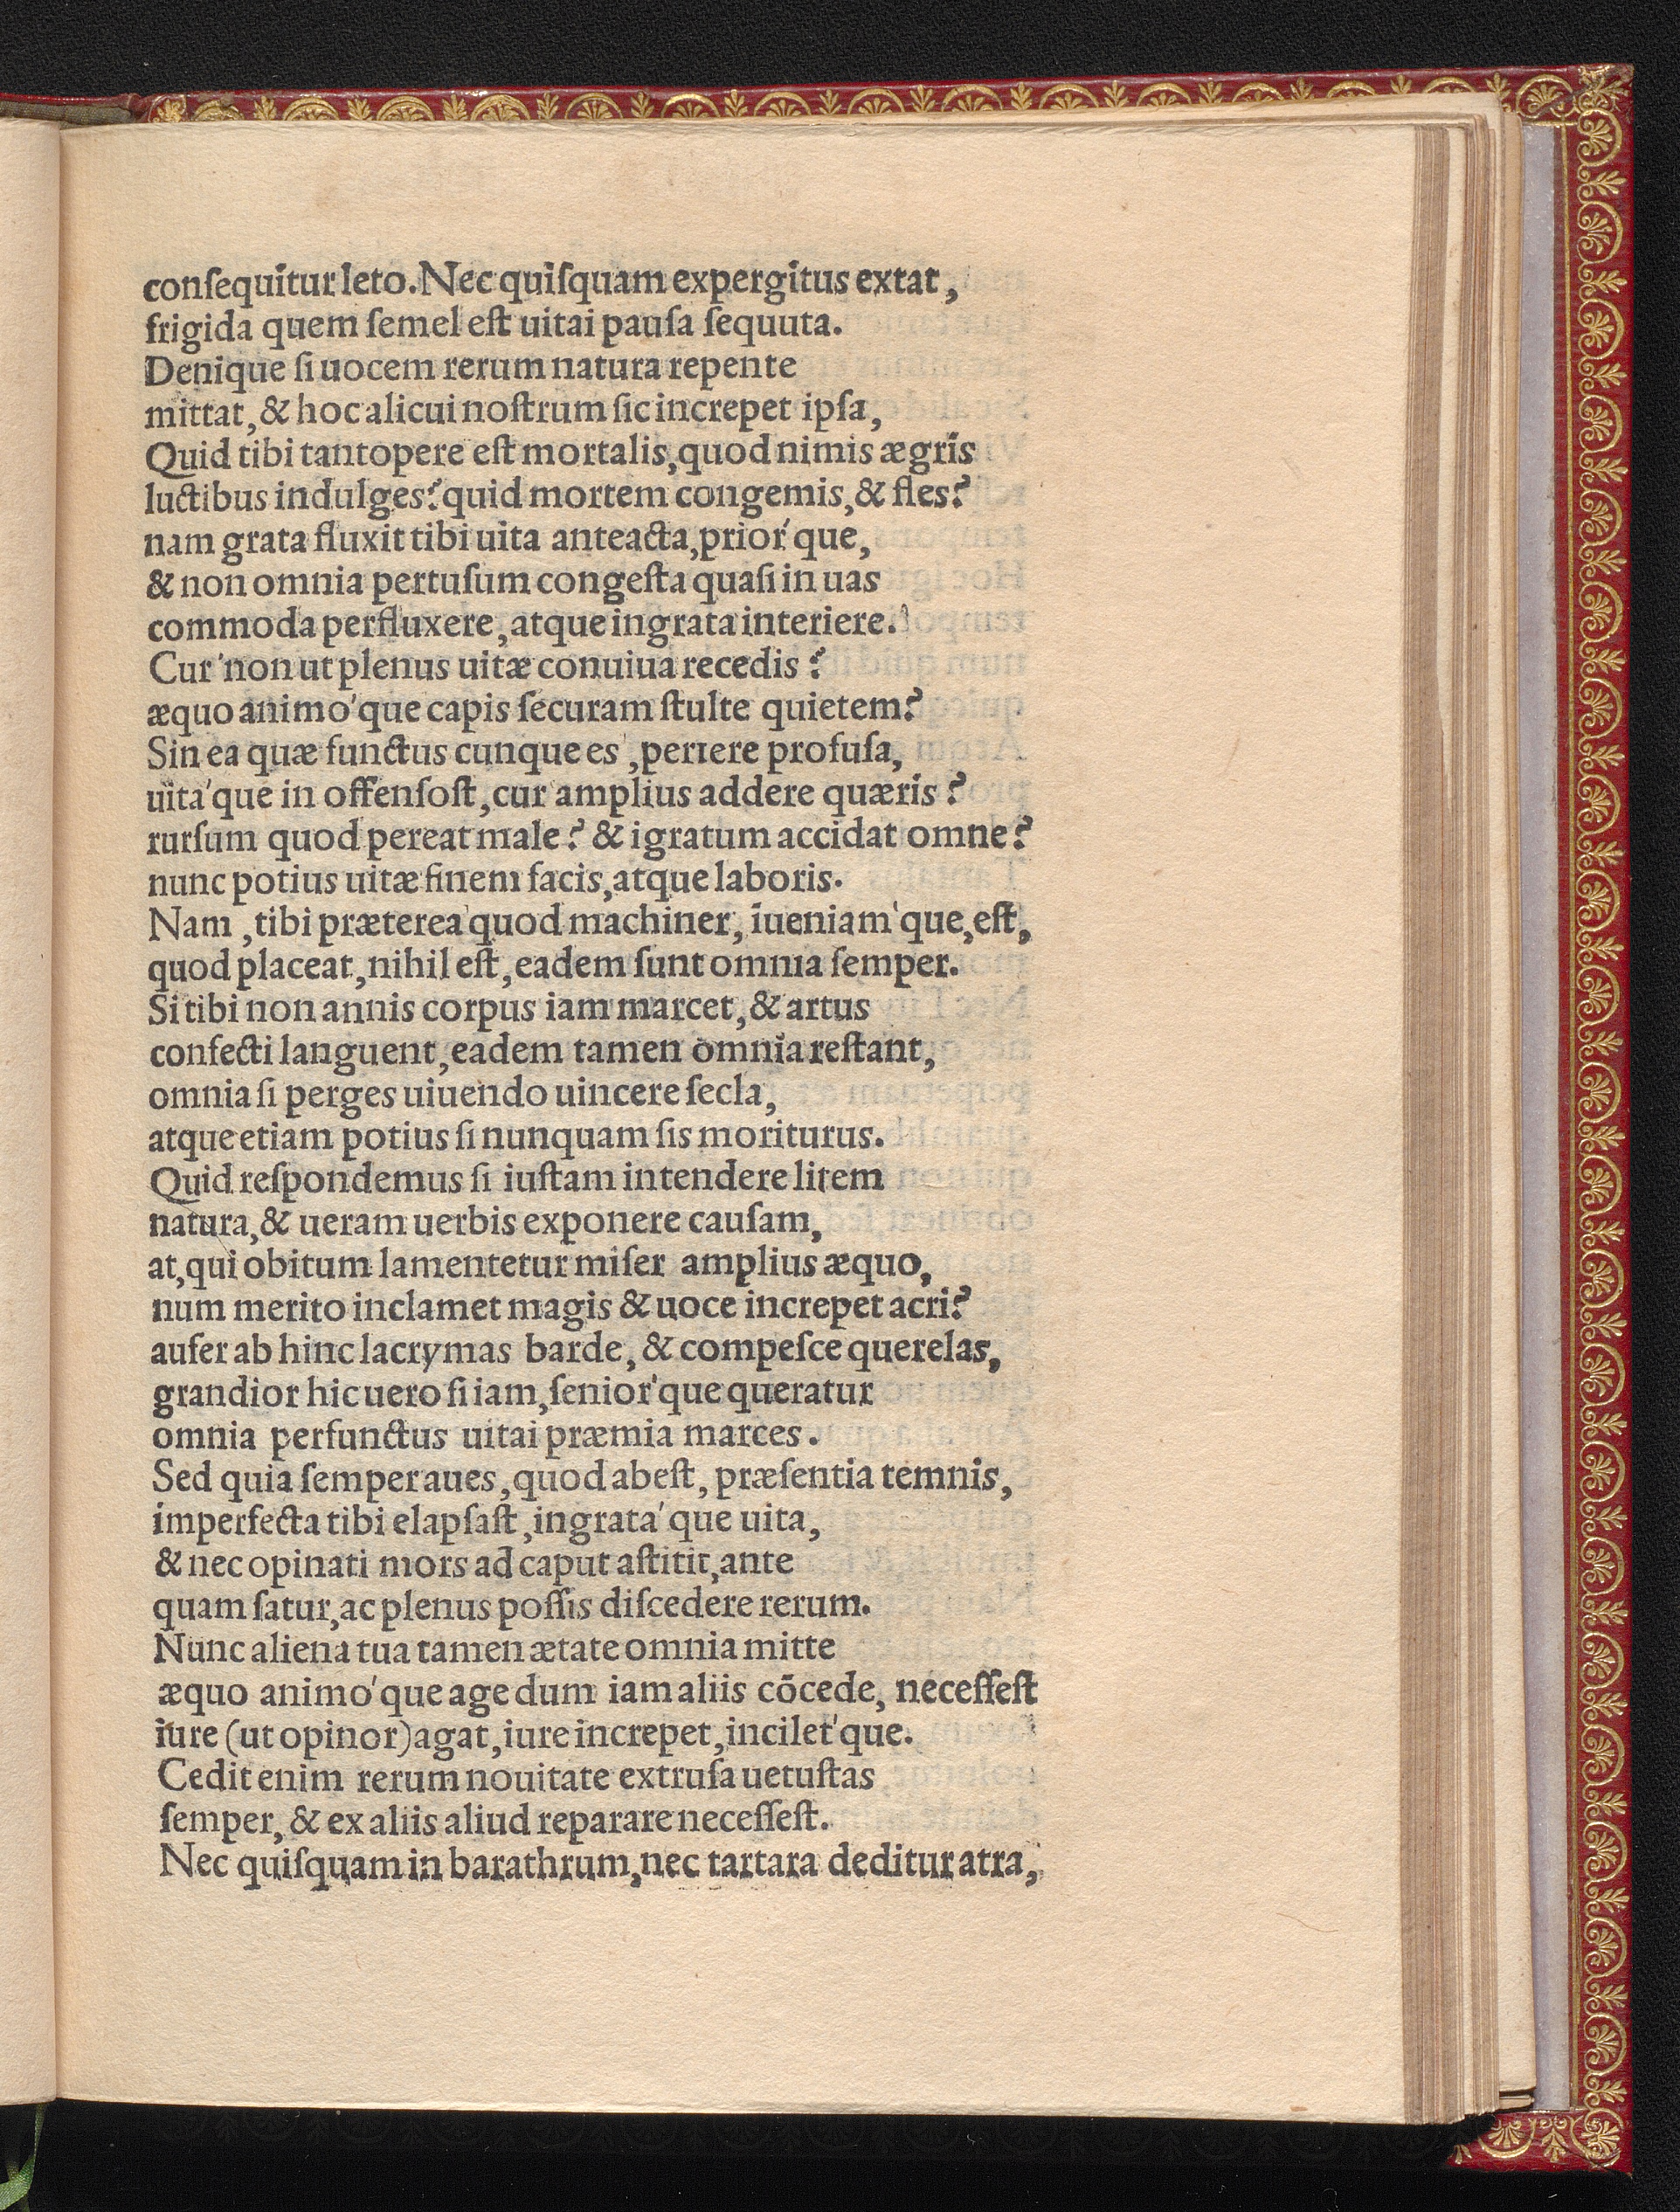 conſequitur leto. Nec quiſquam expergitus extat,
frigida quem ſemel eſt uitai pauſa ſequuta.
Denique ſi uocem rerum natura repente
mittat, & hoc alicui noſtrum ſic increpet ipſa,
Quid tibi tantopere eſt mortalis, quod nimis ægris
luctibus indulges? quid mortem congemis, & fles?
nam grata fluxit tibi uita anteacta, prior'que,
& non omnia pertuſum congeſta quaſi in uas
commoda perfluxere, atque ingrata interiere.
Cur non ut plenus uitæ conuiua recedis?
æquo animo'que capis ſecuram ſtulte quietem?
Sin ea quæ functus cunque es, periere profuſa,
uita'que in offenſoſt, cur amplius addere quæris?
rurſum quod pereat male? & igratum accidat omne?
nunc potius uitæ finem facis, atque laboris.
Nam, tibi præterea quod machiner, īueniam'que, eſt,
quod placeat, nihil eſt, eadem ſunt omnia ſemper.
Si tibi non annis corpus iam marcet, & artus
confecti languent, eadem tamen omnia reſtant,
omnia ſi perges uiuendo uincere ſecla,
atque etiam potius ſi nunquam ſis moriturus.
Quid reſpondemus ſi iuſtam intendere litem
natura, & ueram uerbis exponere cauſam,
at, qui obitum lamentetur miſer amplius æquo,
num merito inclamet magis & uoce increpet acri?
aufer ab hinc lacrymas barde, & compeſce querelas,
grandior hic uero ſi iam, ſenior'que queratur
omnia perfunctus uitai præmia marces.
Sed quia ſemper aues, quod abeſt, præſentia temnis,
imperfecta tibi elapſaſt, ingrata'que uita,
& nec opinati mors ad caput aſtitit, ante
quam ſatur, ac plenus poſſis diſcedere rerum.
Nunc aliena tua tamen ætate omnia mitte
æquo animo'que age dum iam aliis cōcede, neceſſeſt
iure (ut opinor) agat, iure increpet, incilet'que.
Cedit enim rerum nouitate extruſa uetuſtas
ſemper, & ex aliis aliud reparare neceſſeſt.
Nec quiſquam in barathrum, nec tartara deditur atra,